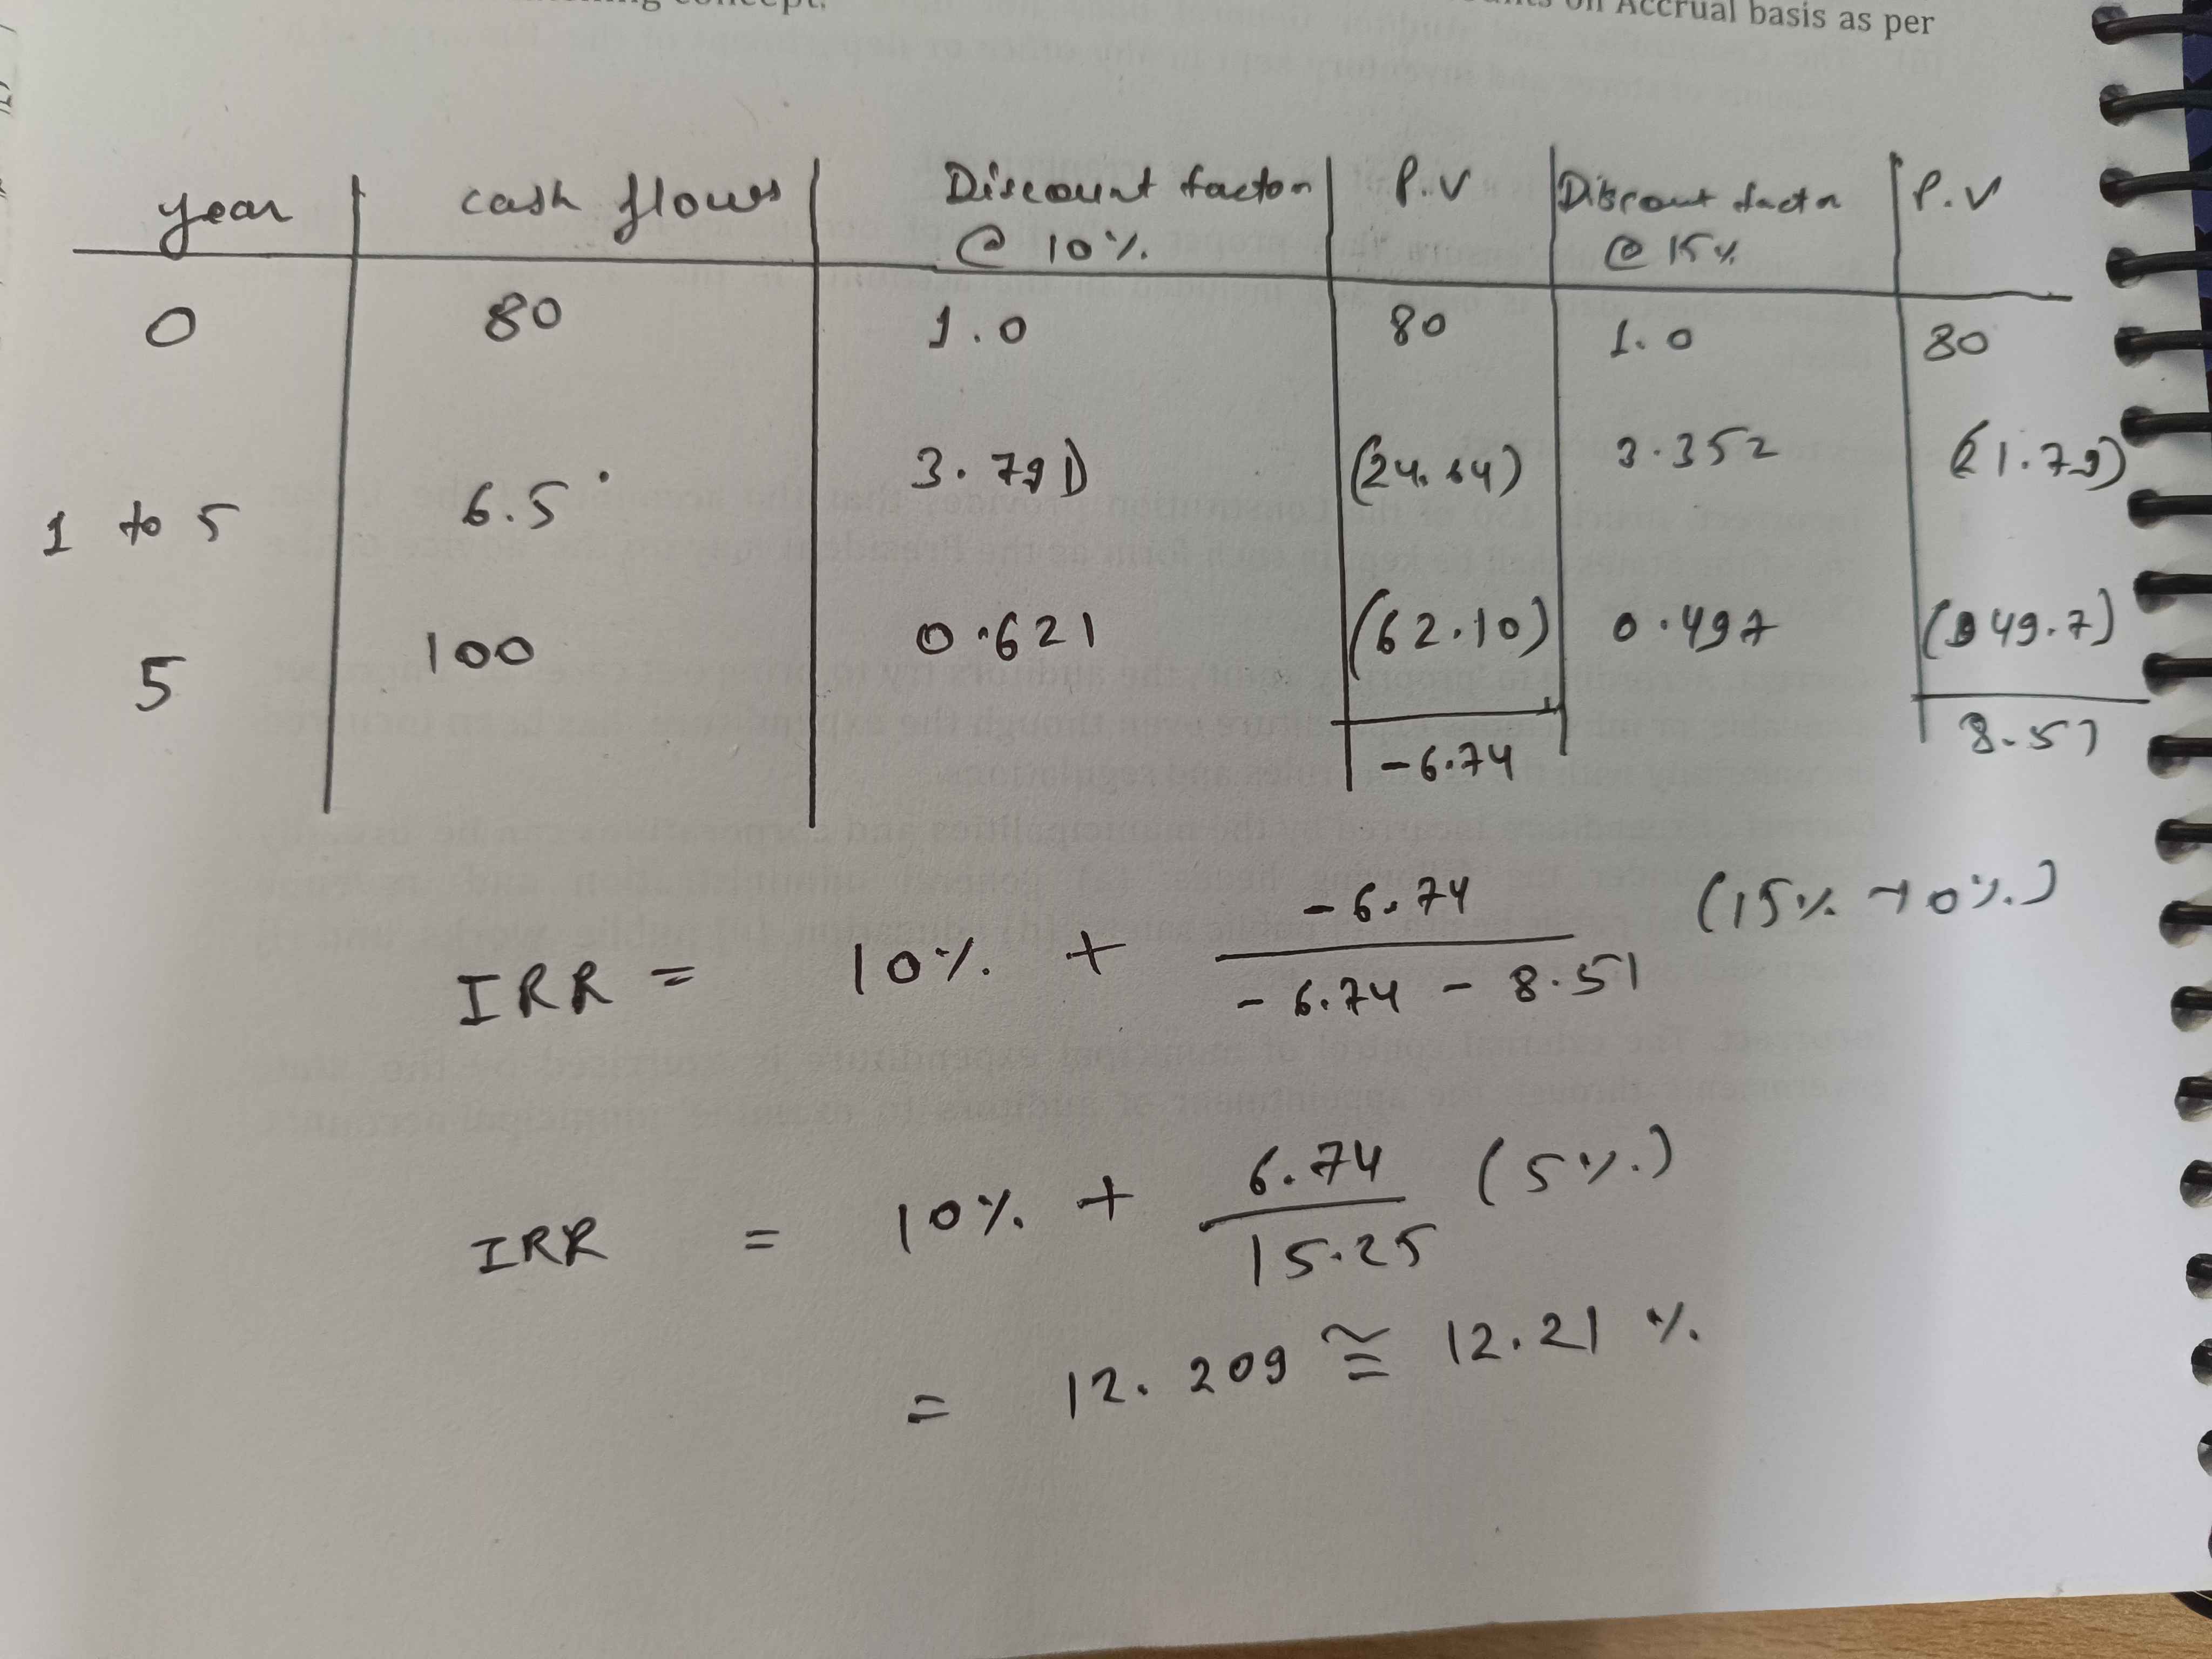 accounts on Accrual basis as per
concept.
year | cash flows | Discount factor @ 10% | P.V | Discount factor @ 15% | P.V
0 | 80 | 1.0 | 80 | 1.0 | 80
1 to 5 | 6.5 | 3.791 | (24.64) | 3.352 | (21.79)
5 | 100 | 0.621 | (62.10) | 0.497 | (49.7)
-6.74 | 8.51
IRR = 10% + -6.74 / -6.74 - 8.51 (15% - 10%)
IRR = 10% + 6.74 / 15.25 (5%)
= 12.209 ≅ 12.21 %